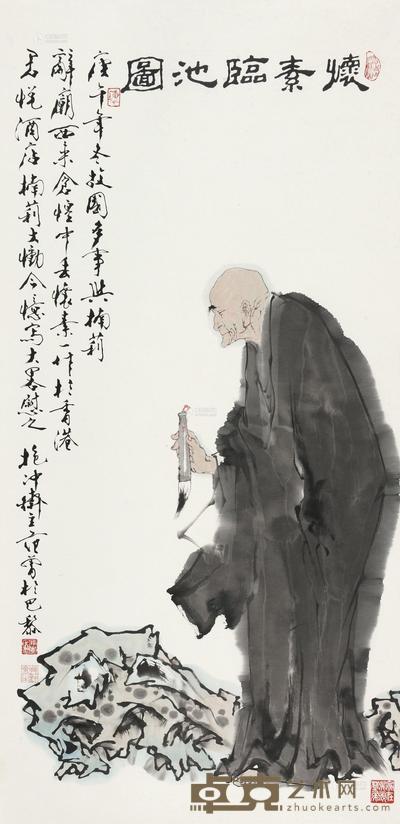 懷素臨池圖
庚午年冬故國多事與楠莉
辭廟西來倉惶中丟懷素一作於香港
君悅酒店楠莉大慟今憶寫大略慰之
抱沖齋主范曾於巴黎
卓克艺术网
www.zhuokearts.com